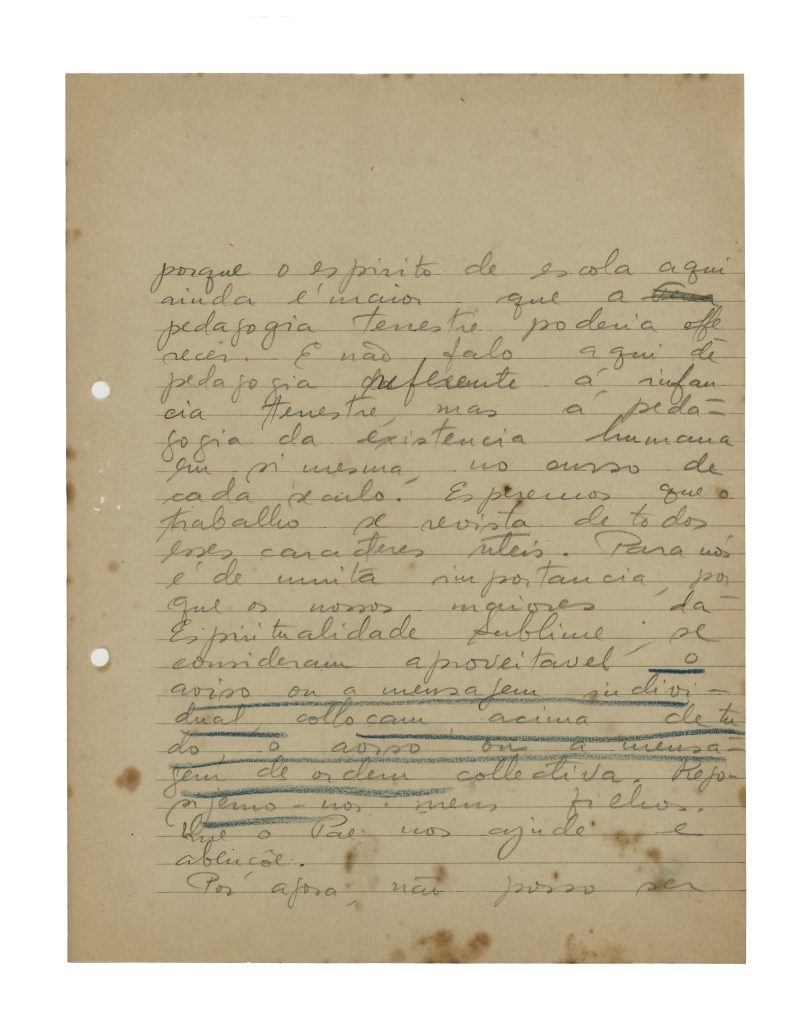 porque o espirito de escola aqui
ainda é maior que a
pedagogia terrestre poderia offe
recer. E não falo aqui de
pedagogia referente á infan
cia terrestre, mas á peda-
gogia da existencia humana
em si mesma, no curso de
cada seculo. Esperemos que o
trabalho se revista de todos
esses caracteres uteis. Para nós
é de muita importancia, por
que os nossos maiores da
Espiritualidade Sublime se
consideram aproveitavel o
aviso ou a mensagem indivi-
dual, collocam acima de tu
do, o aviso ou a mensa-
gem de ordem collectiva. Rego-
sijemo-nos meus filhos.
Que o Pae nos ajude e
abençõe.
Por agora, não posso ser